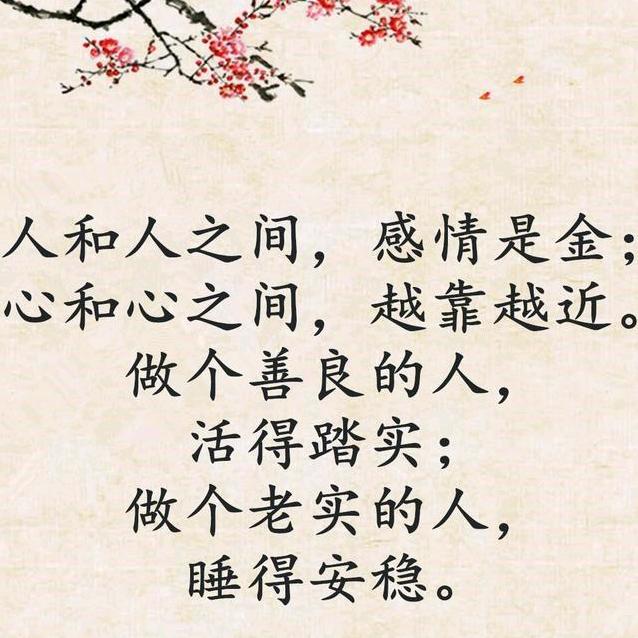 人和人之间，感情是金；
心和心之间，越靠越近。
做个善良的人，
活得踏实；
做个老实的人，
睡得安稳。